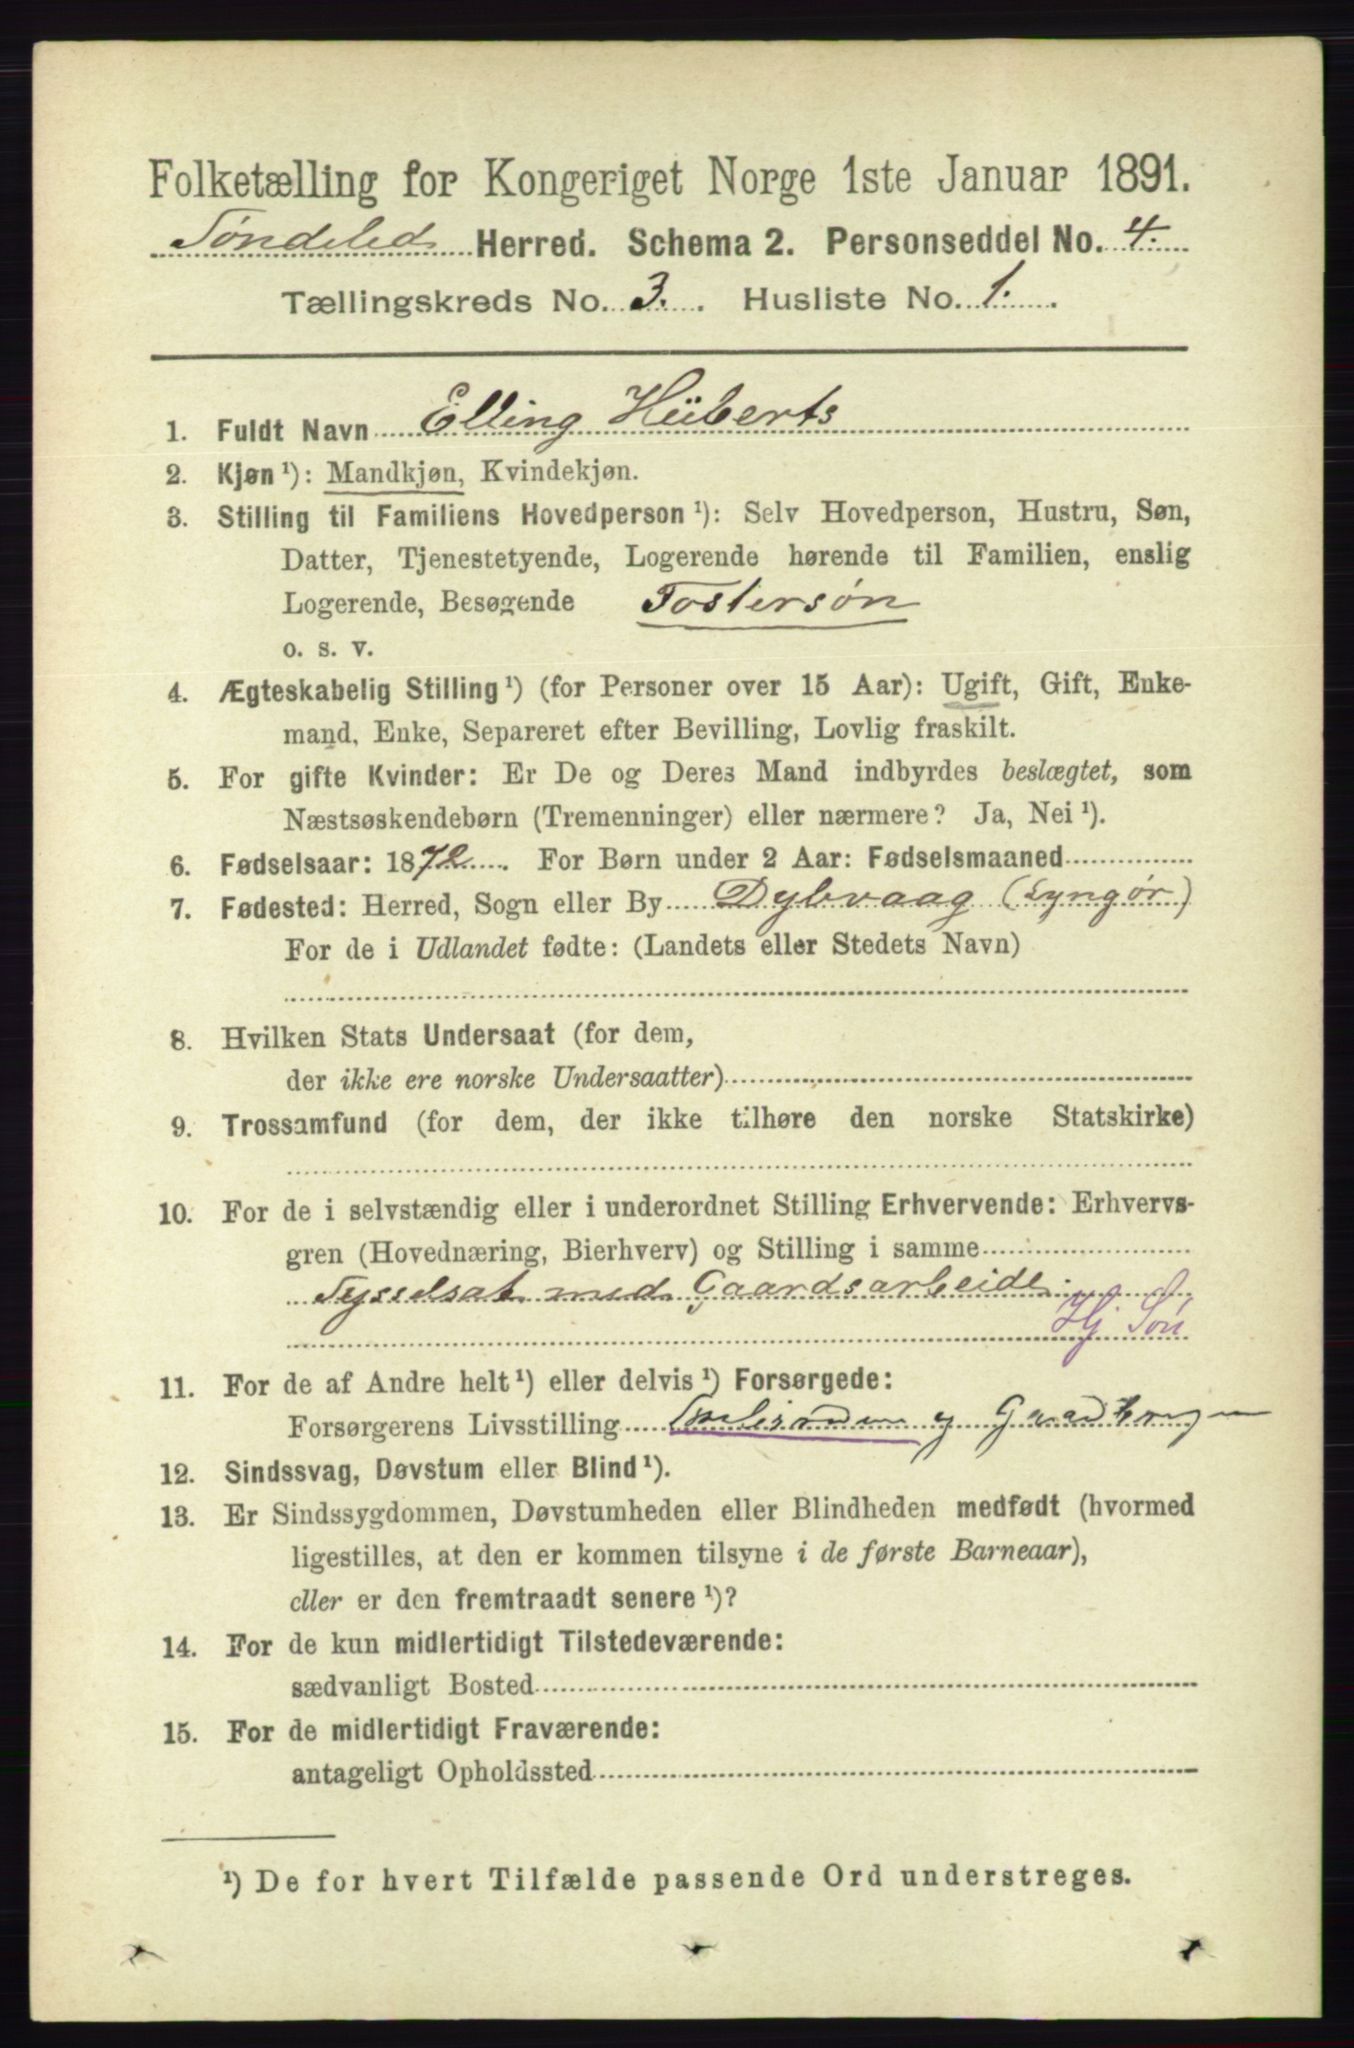 Folketælling for Kongeriget Norge 1ste Januar 1891.
Søndeled Herred. Schema 2. Personseddel No. 4.
Tællingskreds No. 3. Husliste No. 1.
1. Fuldt Navn Elling Hüberts
2. Kjøn ¹): Mandkjøn, Kvindekjøn.
3. Stilling til Familiens Hovedperson ¹): Selv Hovedperson, Hustru, Søn,
Datter, Tjenestetyende, Logerende hørende til Familien, enslig
Logerende, Besøgende Fostersøn
o. s. v.
4. Ægteskabelig Stilling ¹) (for Personer over 15 Aar): Ugift, Gift, Enke-
mand, Enke, Separeret efter Bevilling, Lovlig fraskilt.
5. For gifte Kvinder: Er De og Deres Mand indbyrdes beslægtet, som
Næstsøskendebørn (Tremenninger) eller nærmere? Ja, Nei ¹).
6. Fødselsaar: 1872. For Børn under 2 Aar: Fødselsmaaned
7. Fødested: Herred, Sogn eller By Dybvaag (Lyngør)
For de i Udlandet fødte: (Landets eller Stedets Navn)
8. Hvilken Stats Undersaat (for dem,
der ikke ere norske Undersaatter)
9. Trossamfund (for dem, der ikke tilhøre den norske Statskirke)
10. For de i selvstændig eller i underordnet Stilling Erhvervende: Erhvervs-
gren (Hovednæring, Bierhverv) og Stilling i samme
Sysselsat med Gaardsarbeide.
Hj Søn
11. For de af Andre helt ¹) eller delvis ¹) Forsørgede:
Forsørgerens Livsstilling og Gaardbruger
12. Sindssvag, Døvstum eller Blind ¹).
13. Er Sindssygdommen, Døvstumheden eller Blindheden medfødt (hvormed
ligestilles, at den er kommen tilsyne i de første Barneaar),
eller er den fremtraadt senere ¹)?
14. For de kun midlertidigt Tilstedeværende:
sædvanligt Bosted
15. For de midlertidigt Fraværende:
antageligt Opholdssted
¹) De for hvert Tilfælde passende Ord understreges.